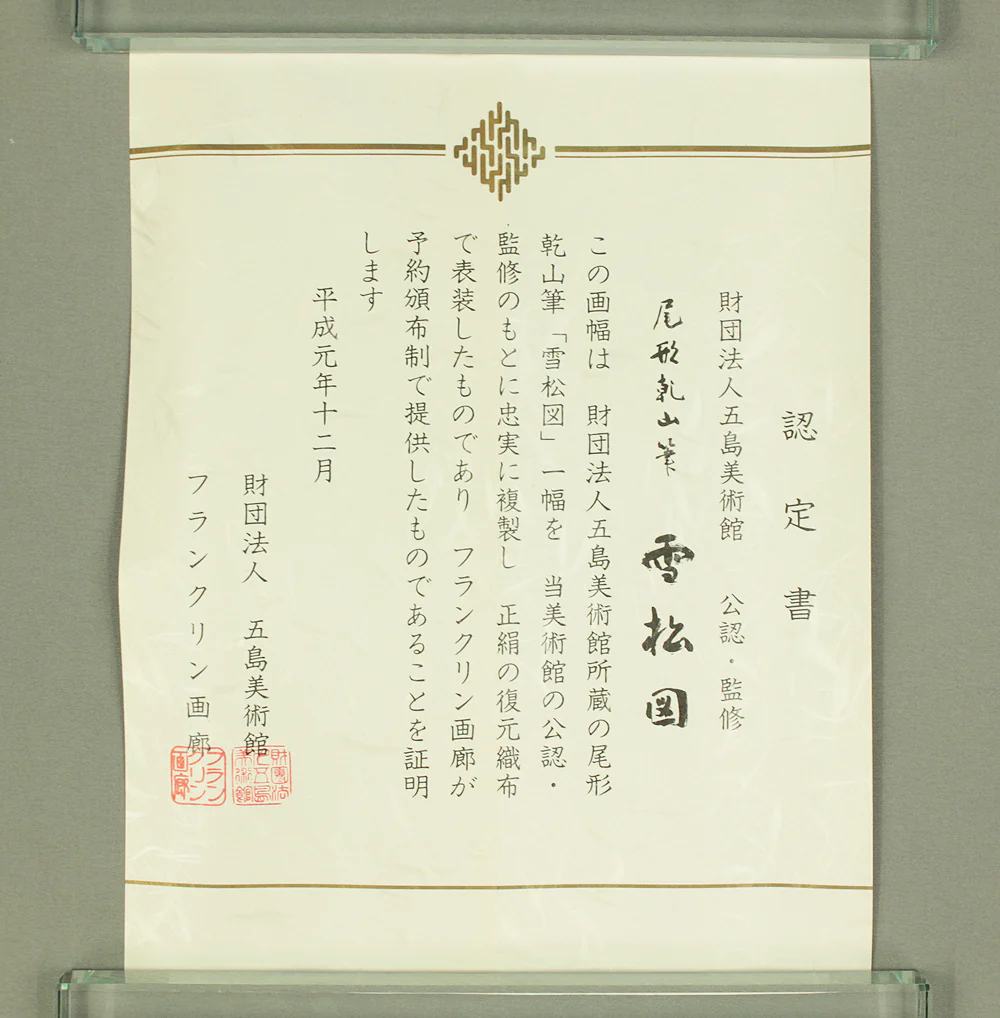 認定書
財団法人五島美術館 公認・監修
尾形乾山筆 雪松図
この画幅は 財団法人五島美術館所蔵の尾形
乾山筆「雪松図」一幅を 当美術館の公認・
監修のもとに忠実に複製し 正絹の復元織布
で表装したものであり フランクリン画廊が
予約頒布制で提供したものであることを証明
します
平成元年十二月
財団法人 五島美術館
財團法人五島美術館
フランクリン画廊
フランクリン画廊